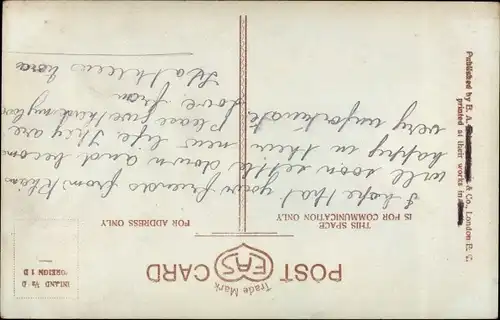 POST CARD
Trade Mark
FAS
THIS SPACE
IS FOR COMMUNICATION ONLY
FOR ADDRESS ONLY
INLAND ½ D
FOREIGN 1 D
I hope that your friends from
will soon settle down and become
happy in their new life. They are
very unfortunate
Please give them my love
Love from
Kathleen
Published by F. A. & Co., London E. C.
printed at their works in